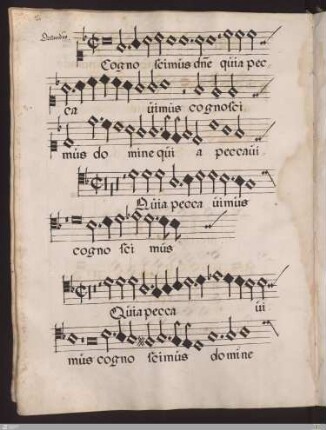 Cogno scimus dne quia pec
ca uimus cognosci
mus do mine qui a peccaui
Quia pecca uimus
cogno sci mus
Quia pecca ui
mus cogno scimus domine